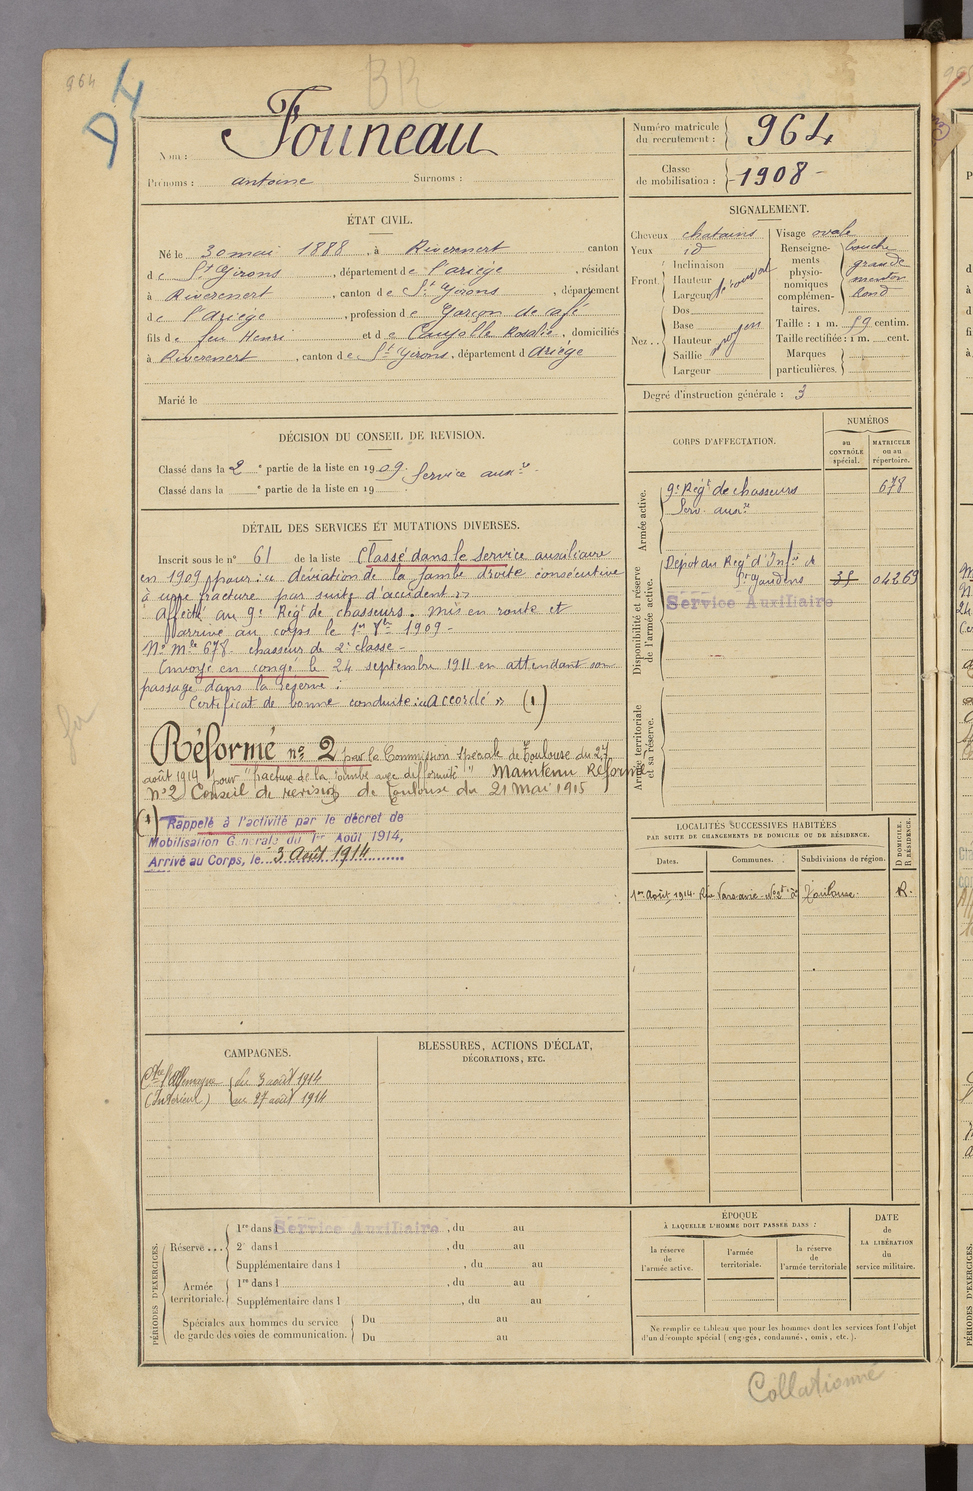 964
D4
BR
Nom : Founeau
Prénoms : antoine Surnoms :
Numéro matricule du recrutement : 964
Classe de mobilisation : 1908
ÉTAT CIVIL.
Né le 30 mai 1888, à Riverenert canton
de St Girons, département de l'ariège, résidant
à Riverenert, canton de St Girons, département
de l'Ariège, profession de Garçon de café
fils de feu Henri et de Caujolle Rosalie, domiciliés
à Riverenert, canton de St Girons, département d Ariège
Marié le
SIGNALEMENT.
Cheveux chatains
Yeux id
Front Inclinaison
Hauteur
Largeur
Nez Dos
Base
Hauteur moyen
Saillie
Largeur
Visage ovale
Renseignements physionomiques complémentaires. bouche
grande
menton
rond
Taille : 1 m. 59 centim.
Taille rectifiée : 1 m. cent.
Marques particulières.
Degré d'instruction générale : 3
DÉCISION DU CONSEIL DE REVISION.
Classé dans la 2e partie de la liste en 1909. Service auxre
Classé dans la e partie de la liste en 19
DÉTAIL DES SERVICES ET MUTATIONS DIVERSES.
Inscrit sous le n° 61 de la liste Classé dans le service auxiliaire
en 1909 pour : "déviation de la jambe droite consécutive
à une fracture par suite d'accident"
Affecté au 9e Régt de chasseurs. Mis en route et
arrivé au corps le 1er 8bre 1909 -
N° mle 678. chasseur de 2e classe -
Envoyé en congé le 24 septembre 1911 en attendant son
passage dans la réserve :
Certificat de bonne conduite : "Accordé" (1)
Réformé n° 2 par la Commission spéciale de Toulouse du 27
août 1914 pour "fracture de la jambe avec difformité" Maintenu Réformé
N°2 Conseil de revision de Toulouse du 21 Mai 1915
(1) Rappelé à l'activité par le décret de
Mobilisation Générale du 1er Août 1914,
Arrivé au Corps, le 3 Août 1914
CORPS D'AFFECTATION.
NUMÉROS
au CONTRÔLE spécial.
MATRICULE ou au répertoire.
Armée active.
9e Régt de chasseurs 678
Serv. auxre
Disponibilité et réserve de l'armée active.
Dépôt du Régt d'Infie de
St Gaudens 35 04269
Service Auxiliaire
Armée territoriale et sa réserve.
LOCALITÉS SUCCESSIVES HABITÉES
PAR SUITE DE CHANGEMENTS DE DOMICILE OU DE RÉSIDENCE.
Dates. Communes. Subdivisions de région. D DOMICILE. R RÉSIDENCE.
1er Août 1914. Rue Varsovie Toulouse. R.
CAMPAGNES.
Ctre l'Allemagne du 3 août 1914
(Intérieur) au 27 août 1914
BLESSURES, ACTIONS D'ÉCLAT,
DÉCORATIONS, ETC.
PÉRIODES D'EXERCICES.
Réserve... 1re dans l Service Auxiliaire, du au
2e dans l , du au
Supplémentaire dans l , du au
Armée territoriale. 1re dans l , du au
Supplémentaire dans l , du au
Spéciales aux hommes du service Du au
de garde des voies de communication. Du au
ÉPOQUE
À LAQUELLE L'HOMME DOIT PASSER DANS :
la réserve de l'armée active.
l'armée territoriale.
la réserve de l'armée territoriale
DATE de LA LIBÉRATION du service militaire.
Ne remplir ce tableau que pour les hommes dont les services font l'objet
d'un décompte spécial (engagés, condamnés, omis, etc.).
Collationné